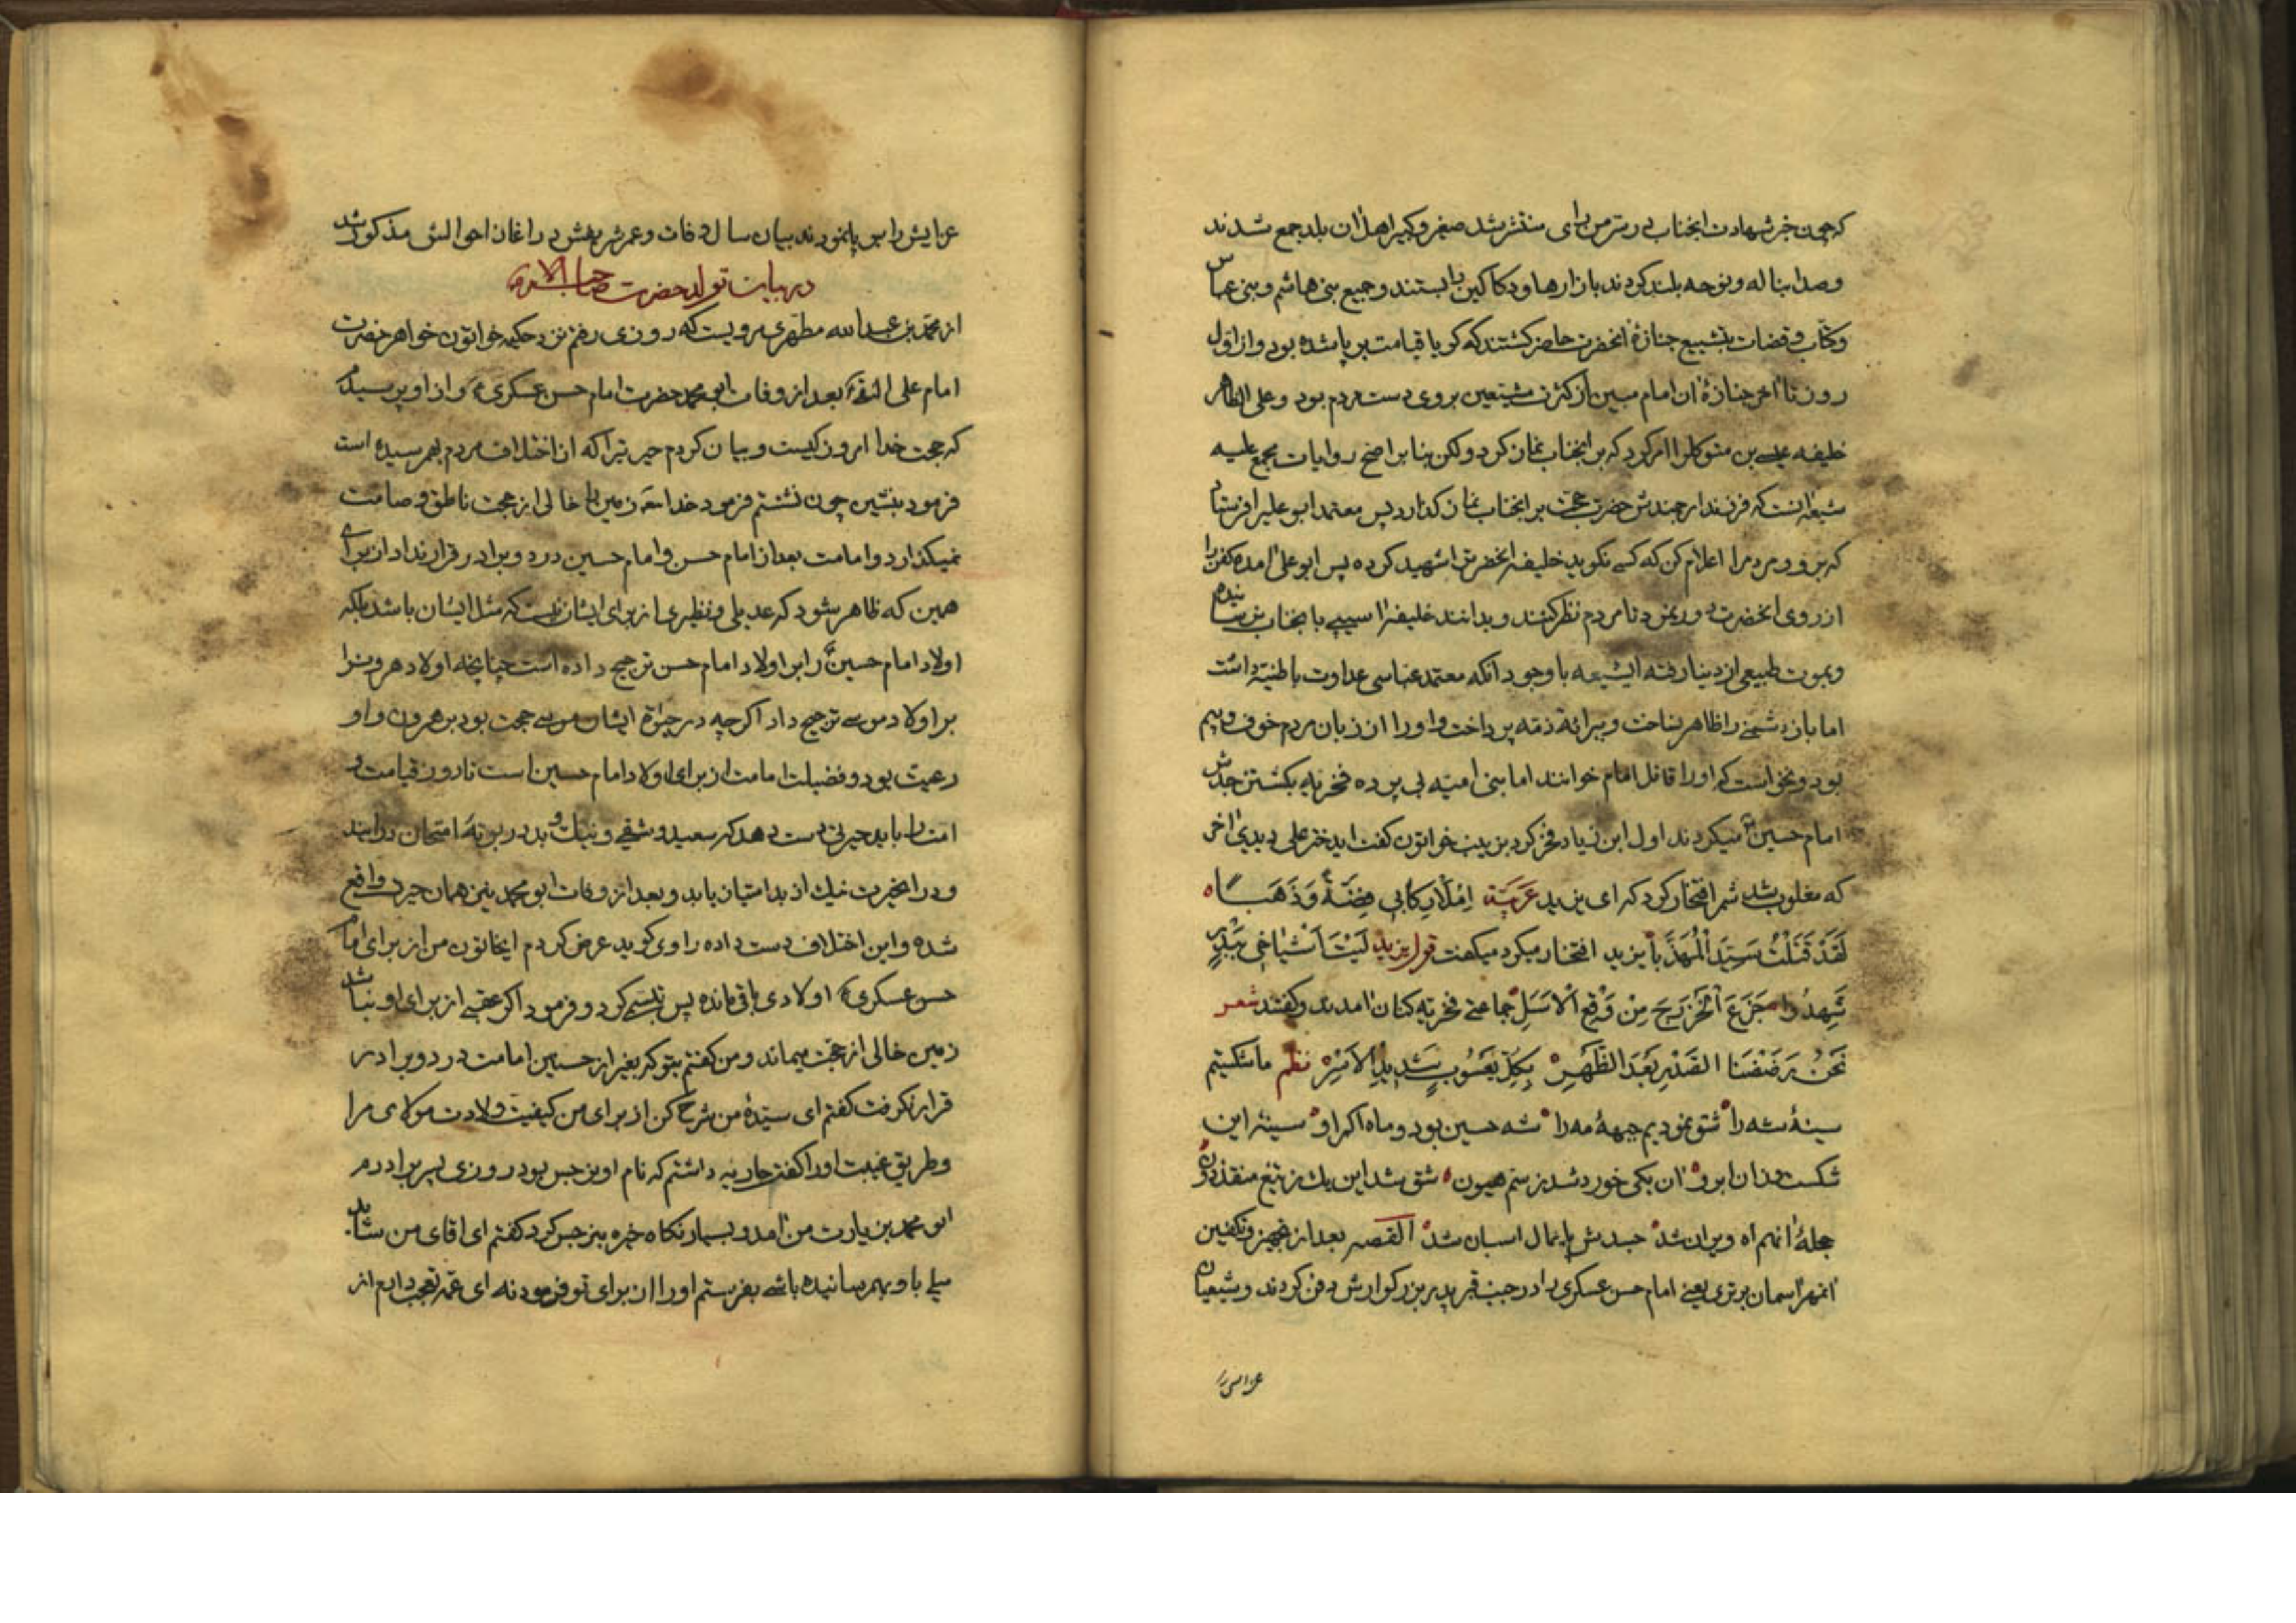 که چون خبر شهادت انجناب در سر من رای منتشر شد صغیر و کبیر اهل ان بلد جمع شدند
وصدا بناله و نوحه بلند کردند بازارها و دکاکین را بستند و جمیع بنی هاشم و بنی عباس
و کتّاب و قضات بتشییع جنازهٔ انحضرت حاضر کشتند که کویا قیامت بر پا شده بود و از اول
روز تا اخر جنازهٔ ان امام مبین از کثرت مشیّعین بروی دست مردم بود و علی الظاهر
خلیفه بن متوکل را امر کرد که بر انجناب نماز کرد و لکن بنا بر اصح روایات مجمع علیه
شیعه انست که فرزند ارجمندش حضرت حجت بر انجناب نماز کذارد پس معتمد ابو علیرا فرستاد
که برو و مردم را اعلام کن که کسی نکوید خلیفه انحضرت را شهید کرده پس ابو علی امده کفن را
از روی انحضرت دور نمود تا مردم نظر کنند و بدانند خلیفه اسیبی بانجناب نرسانیده
و بموت طبیعی از دنیا رفته ایشیعه با وجود انکه معتمد عباسی عداوت باطنیّه داشت
اما باز دشمنی را ظاهر نساخت و ببرائة ذمّه پرداخت و او را از زبان مردم خوف و بیم
بود و نخواست که او را قاتل امام خوانند اما بنی امیّه بی پرده فخریه بکشتن جدش
امام حسین میکردند اول ابن زیاد فخر کرد بزینب خواتون کفت ایدختر علی دیدی اخر
که مغلوب شد شمر افتخار کرد که ای یزید عَرَبیَّة اِمْلَأْ رِکابِی فِضَّةً وَ ذَهَبًا
لَقَدْ قَتَلْتُ سَیِّدَ الْمُهَذَّبا یزید افتخار میکرد میکفت قول یزید لَیْتَ اَشْیاخِی بِبَدْرٍ
شَهِدُوا جَزَعَ الْخَزْرَجِ مِنْ وَقْعِ الْاَسَلِ جماعتی فخریه کنان امدند و کفتند شعر
نَحْنُ رَضَضْنَا الصَّدْرَ بَعْدَ الظَّهْرِ بِکُلِّ یَعْبُوبٍ شَدِیدِ الْاَسْرِ نظم ما شکستیم
سینهٔ شه را شق نمودیم جبههٔ مه را شه حسین بود و ماه اکبر او سینه این
شکست و ان ابرو ان یکی خورد شد ز سم هیون شق شد این یک ز تیغ منقذ دون
جملهٔ انهم اه ویران شد جسدش پایمال اسبان شد القصه بعد از تجهیز و تکفین
انمهر اسمان برتری یعنی امام حسن عسکری را در جنب قبر پدر بزرکوارش دفن کردند و شیعیان
عزایش
عزایش را بر پا نمودند بیان سال وفات و عمر شریفش در اغاز احوالش مذکور شد
در بیان تولد حضرت صاحب الامر
از محمد بن عبدالله مطهری مرویست که روزی رفتم نزد حکیمه خواتون خواهر حضرت
امام علی النقی بعد از وفات ابو محمد حضرت امام حسن عسکری و از او پرسیدم
که حجت خدا امروز کیست و بیان کردم حیرتیرا که از اختلاف مردم بهم رسیده است
فرمود بنشین چون نشستم فرمود خدا زمین را خالی از حجت ناطق و صامت
نمیکذارد و امامت بعد از امام حسن و امام حسین در دو برادر قرار نداد از برای
همین که ظاهر شود که عدیلی و نظیری از برای ایشان نیست که مثل ایشان باشد بلکه
اولاد امام حسین را بر اولاد امام حسن ترجیح داده است چنانچه اولاد هرون را
بر اولاد موسی ترجیح داد اکرچه در حیوة ایشان موسی حجت بود بر هرون و او
رعیت بود و فضیلت امامت از برای اولاد امام حسین است تا روز قیامت و
امت را باید حیرتی دست دهد که سعید و شقی و نیک و بد در بوتهٔ امتحان درایند
و در انحیرت نیک از بد امتیاز یابد و بعد از وفات ابو محمد نیز همان حیرت واقع
شده و این اختلاف دست داده راوی کوید عرض کردم ایخاتون من از برای امام
حسن عسکری اولادی باقی مانده پس تبسّمی کرد و فرمود اکر عقبی از برای او نباشد
زمین خالی از حجت میماند و من کفتم بتو که بغیر از حسنین امامت در دو برادر
قرار نکرفت کفتم ای سیّدهٔ من شرح کن از برای من کیفیت ولادت مولای مرا
و طریق غیبت او را کفت جاریه داشتم که نام او نرجس بود روزی پسر برادرم
ابو محمد بزیارت من امد و بسیار نکاه خیره بنرجس کرد کفتم ای اقای من شاید
میلی باو بهم رسانیده باشی بفرستم او را از برای تو فرمود نه ای عمّه تعجب دارم از